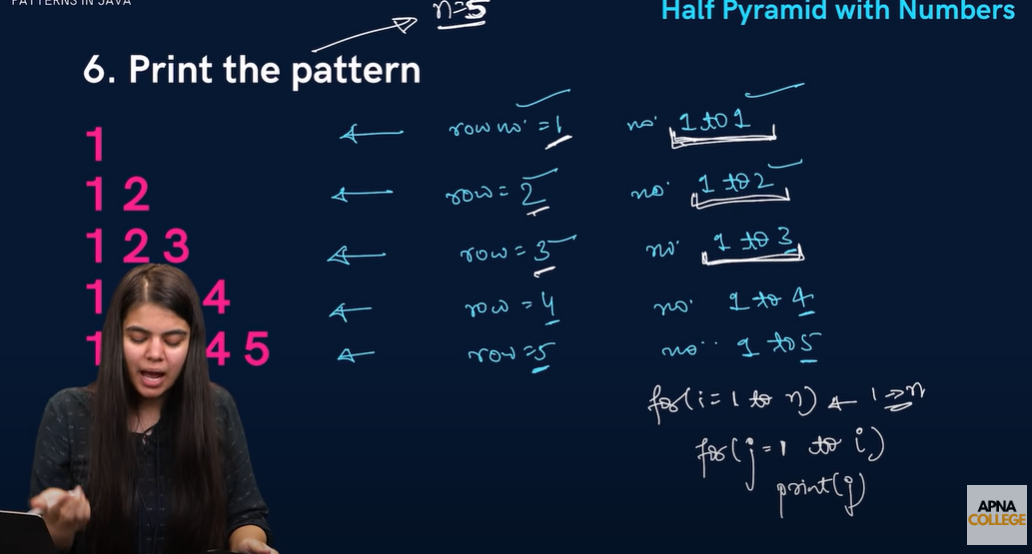 PATTERNS IN JAVA
n=5
Half Pyramid with Numbers
6. Print the pattern
1 row no. = 1 no. 1 to 1
1 2 row = 2 no. 1 to 2
1 2 3 row = 3 no. 1 to 3
1 4 row = 4 no. 1 to 4
1 4 5 row = 5 no. 1 to 5
for(i=1 to n) ← 1 => n
for(j=1 to i)
print(j)
APNA
COLLEGE